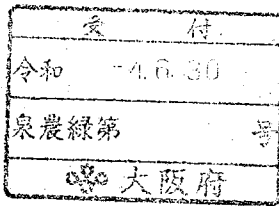 受付
令和 -4.6.30
泉農緑第 号
大阪府